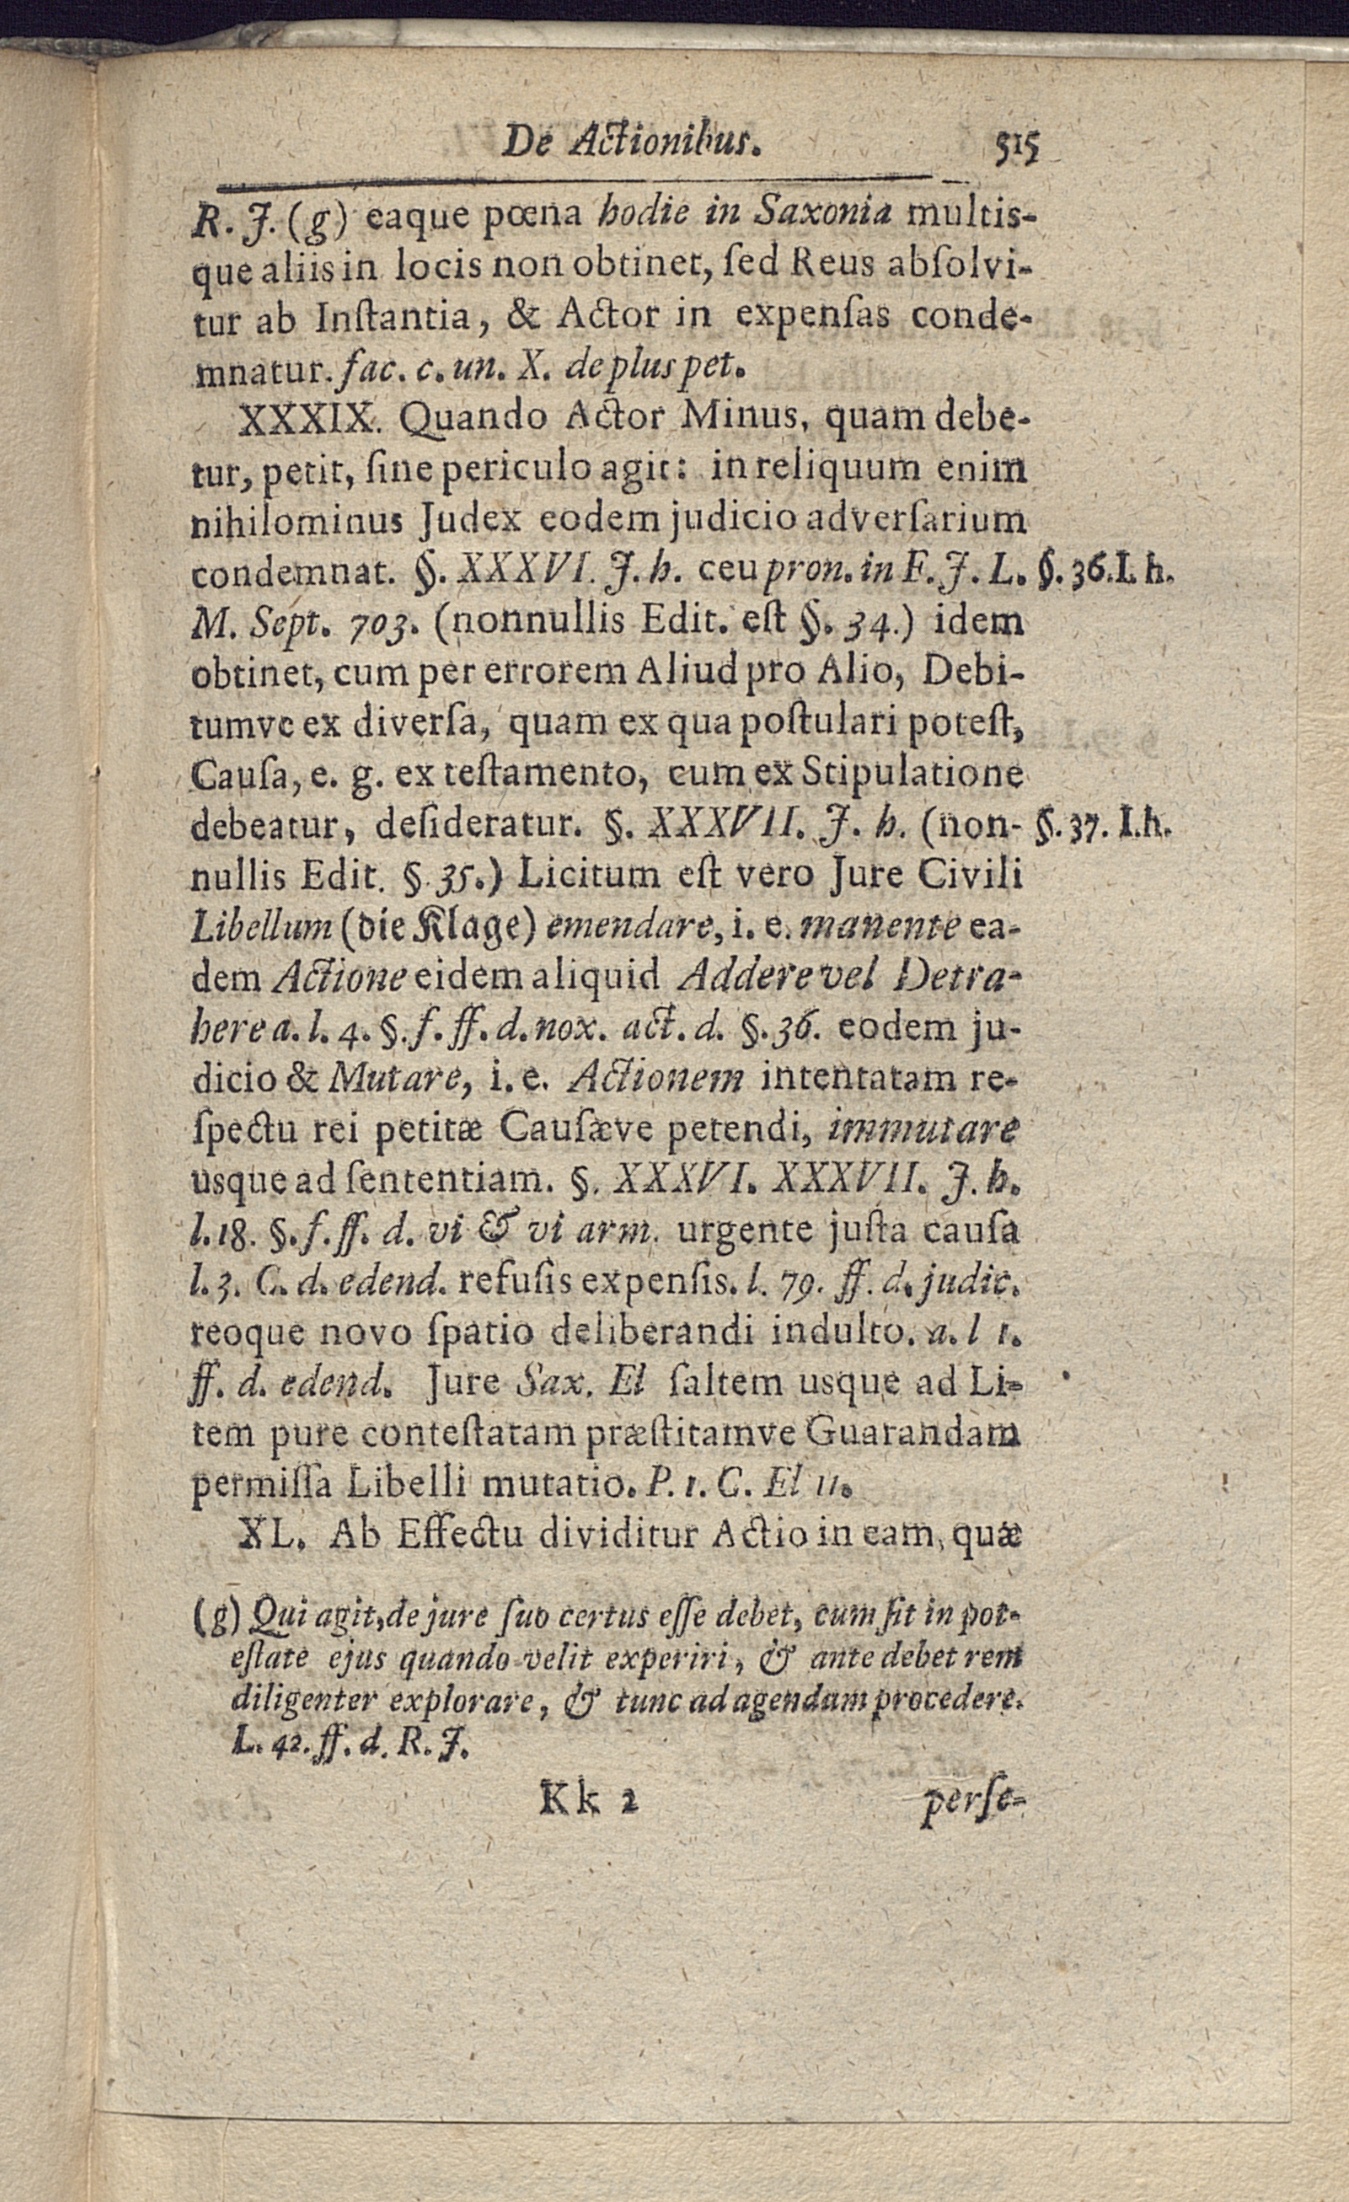 De Actionibus. 515
R. J. (g) eaque pœna hodie in Saxonia multis-
que aliis in locis non obtinet, ſed Reus abſolvi-
tur ab Inſtantia, & Actor in expenſas conde-
mnatur. fac. c. un. X. de plus pet.
XXXIX. Quando Actor Minus, quam debe-
tur, petit, ſine periculo agit: in reliquum enim
nihilominus Judex eodem judicio adverſarium
condemnat. §. XXXVI. J. h. ceu pron. in F. J. L. §. 36. I. h.
M. Sept. 703. (nonnullis Edit. eſt §. 34.) idem
obtinet, cum per errorem Aliud pro Alio, Debi-
tumve ex diverſa, quam ex qua poſtulari poteſt,
Cauſa, e. g. ex teſtamento, cum ex Stipulatione
debeatur, deſideratur. §. XXXVII. J. h. (non- §. 37. I. h.
nullis Edit. §. 35.) Licitum eſt vero Jure Civili
Libellum (die Klage) emendare, i. e. manente ea-
dem Actione eidem aliquid Addere vel Detra-
here a. l. 4. §. f. ff. d. nox. act. d. §. 36. eodem ju-
dicio & Mutare, i. e. Actionem intentatam re-
ſpectu rei petitæ Cauſæve petendi, immutare
usque ad ſententiam. §. XXXVI. XXXVII. J. h.
l. 18. §. f. ff. d. vi & vi arm. urgente juſta cauſa
l. 3. C. d. edend. refuſis expenſis. l. 79. ff. d. judic.
reoque novo ſpatio deliberandi indulto. a. l 1.
ff. d. edend. Jure Sax. El ſaltem usque ad Li-
tem pure conteſtatam præſtitamve Guarandam
permiſſa Libelli mutatio. P. 1. C. El 11.
XL. Ab Effectu dividitur Actio in eam, quæ
(g) Qui agit, de jure ſuo certus eſſe debet, cum ſit in pot-
eſtate ejus quando velit experiri, & ante debet rem
diligenter explorare, & tunc ad agendum procedere.
L. 42. ff. d. R. J.
Kk 2 perſe-